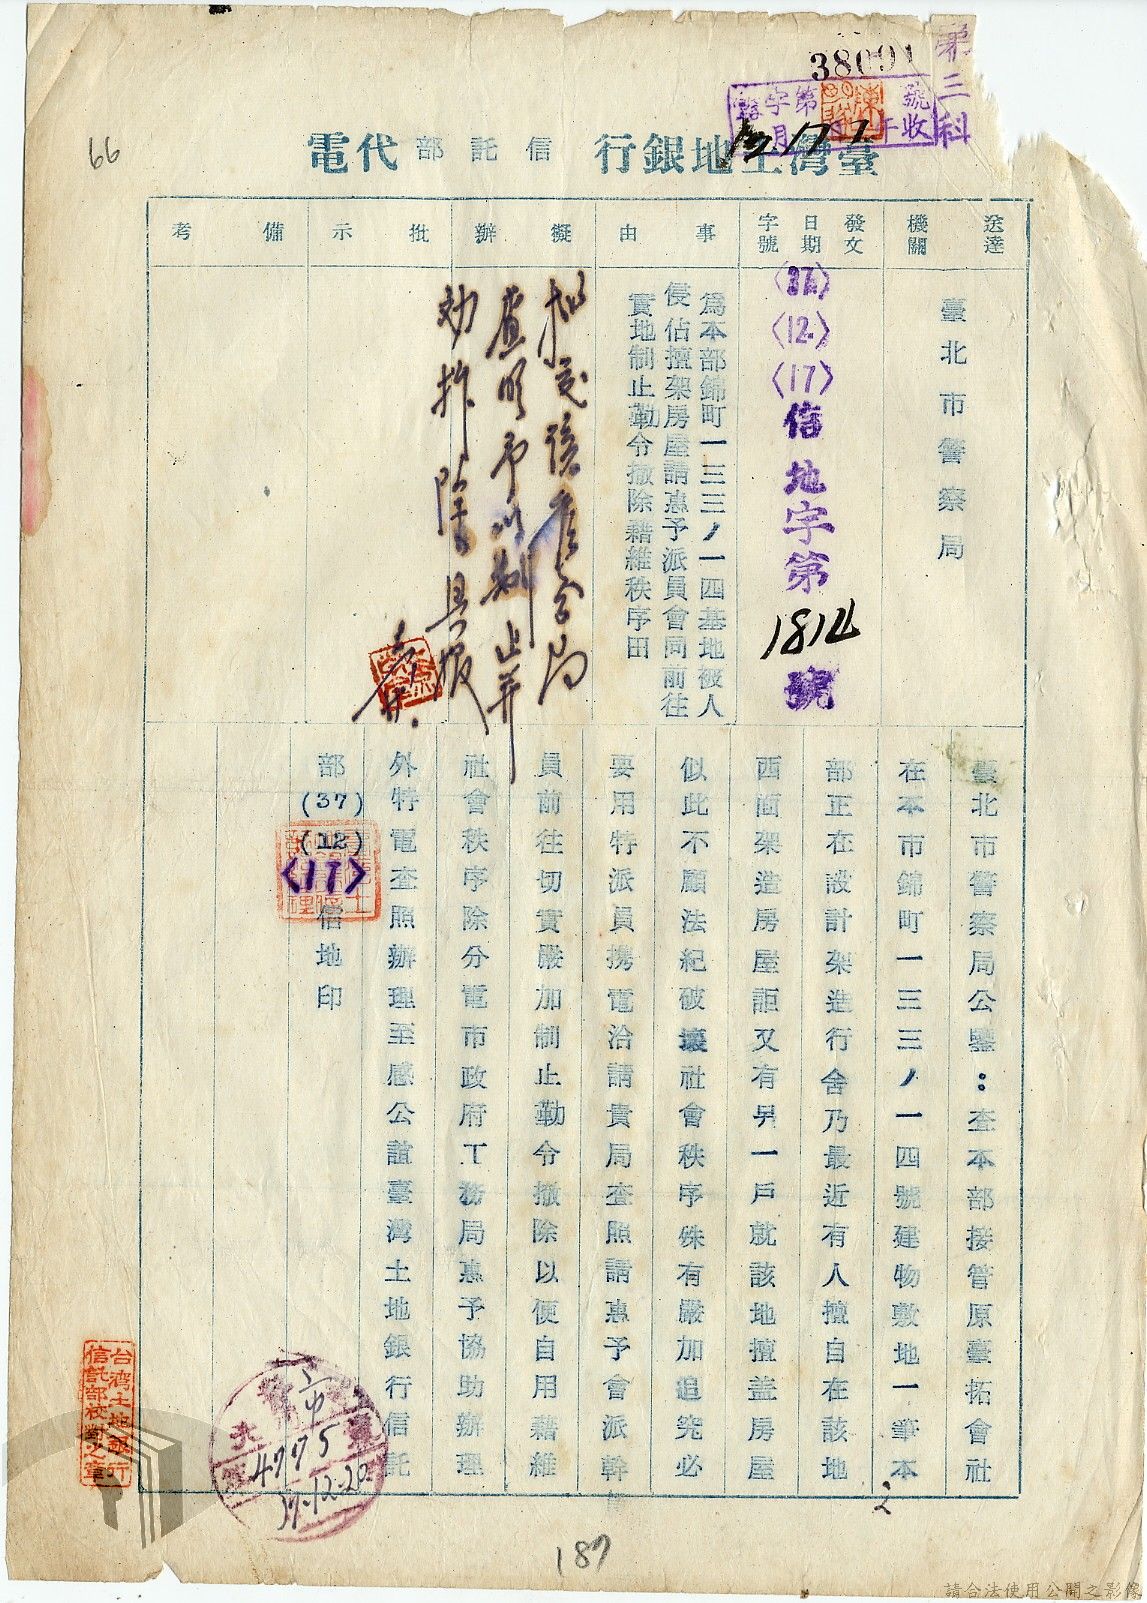 第三科
38091
字第 號
月 年收
臺灣土地銀行信託部代電
66
送達機關
發文日期字號
事由
擬辦
批示
備考
臺北市警察局
(37)
(12)
(17)
信地字第
1814
號
為本部錦町一三三ノ一四基地被人
侵佔擅架房屋請惠予派員會同前往
實地制止勒令撤除藉維秩序由
查明予以制止并
拆除具報
臺北市警察局公鑒:查本部接管原臺拓會社
在本市錦町一三三ノ一四號建物敷地一筆本
部正在設計架造行舍乃最近有人擅自在該地
西面架造房屋詎又有另一戶就該地擅蓋房屋
似此不顧法紀破壞社會秩序殊有嚴加追究必
要用特派員携電洽請貴局查照請惠予會派幹
員前往切實嚴加制止勒令撤除以便自用藉維
社會秩序除分電市政府工務局惠予協助辦理
外特電查照辦理至感公誼臺灣土地銀行信託
部(37)(12)〈17〉信地印
台湾土地銀行
信託部校對之章
4775
37.12.20
2
187
請合法使用公開之影像